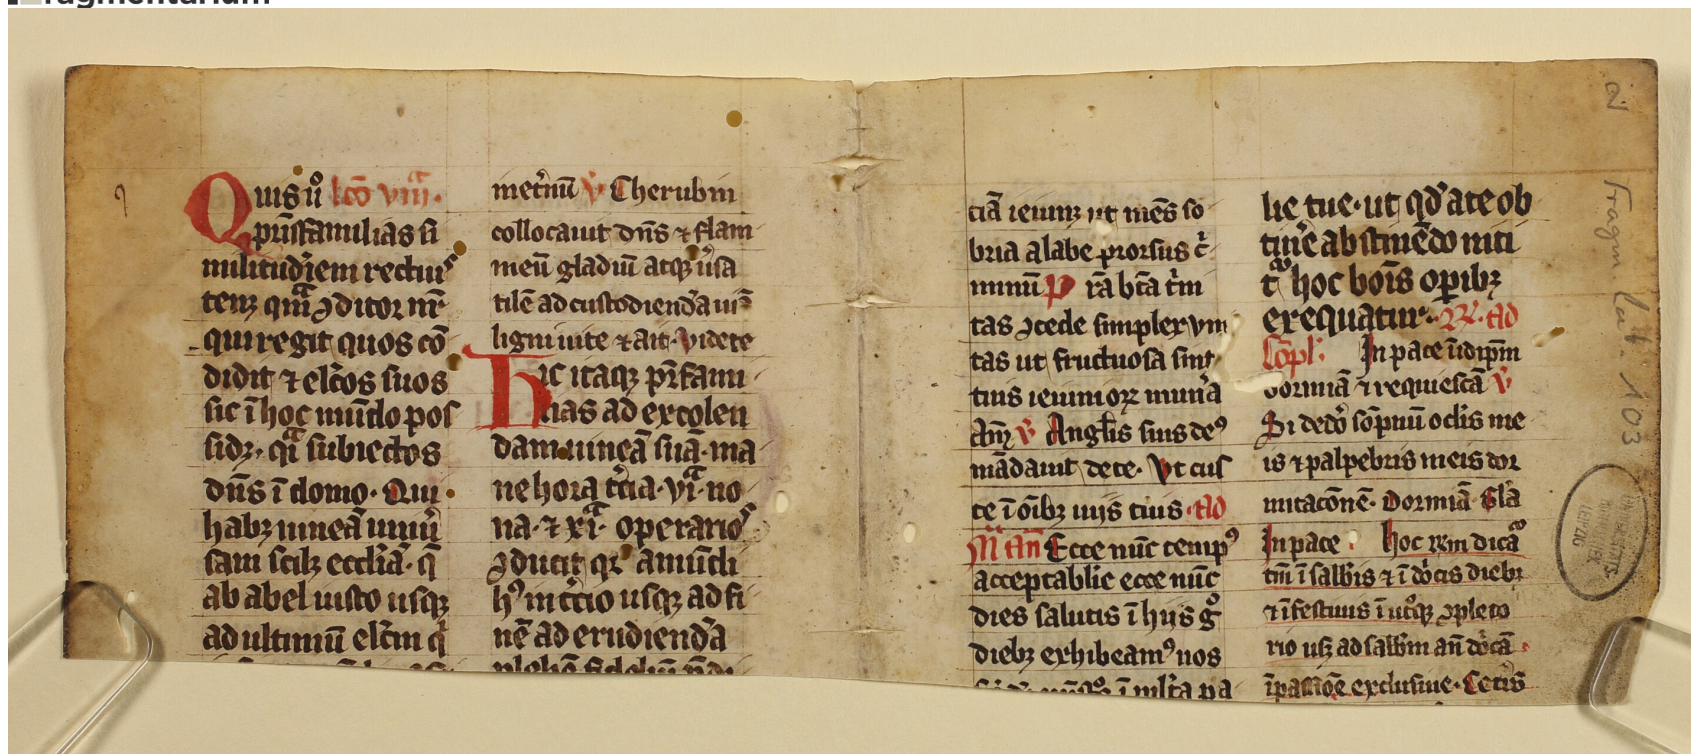 Quis ů lcō viiii.
pr̄isfamilias si
militudīem rectius
tenꝫ qm̄ ꝯditor nr̄
qui regit quos cō
didit ⁊ elc̄os suos
sic ī hoc mūdo pos
sidꝫ. qͣ subiectos
dn̄s ī domo. Qui
habꝫ uineā uniū̓
sam scilꝫ eccl̄iā. q̄
ab abel iusto usqꝫ
ad ultimū elc̄m q̓
met̓nū v̓ Cherubin
collocauit dn̄s ⁊ flam
meū gladiū atqꝫ u̓sa
tilē ad custodiend̓a uiā
ligni uite ⁊ ait Videte
Hic itaqꝫ pr̄fami
lias ad excolen
dam uineā suā. ma
ne hora t̓cia. viͣ. no
na. ⁊ xiͣ. operarios
ꝯducit qꝛ a mūdi
hꝰ inic̄io usqꝫ ad fi
nē ad erudiend̓a
plebē fideliū
ciā ieiunꝫ ut mēs so
bria a labe prorsus c̓
minū P rā bt̄a t̓ni
tas ꝯcede simplex vni
tas ut fructuosa sint
tuis ieiunioꝝ mun̓a
Am̄ v̓ Angl̓is suis deꝰ
mādauit de te. Vt cus
te ī oībꝫ uijs tuis. Ad
Mͣ An̄ Ecce nūc tempꝰ
acceptabile ecce nūc
dies salutis ī hijs gͦ
diebꝫ exhibeamꝰ nos
ī ml̓ta pa
lie tue. ut qd̓ a te ob
tin̓e abstinēdo niti
t᷑ hoc bois̄ opibꝫ
exequatur. R̓. Ad
Cōpl̓. In pace īdip̄m
dormiā ⁊ requiescā v̓
Si ded̓o sōpnū oclīs me
is ⁊ palpebris meis dor
mitacōnē. Dormiā. Gl̓a
In pace. Hoc r̄m dicāͦ
tm̄ ī salb̄is ⁊ ī dōcis diebꝫ
⁊ ī festiuis ī ut̓qꝫ ꝯpleto
rio usqꝫ ad salb̄m an̄ dōcā
ī passiōe exclusiue. Cet̓is
Fragm. lat. 103
UNIVERSITÄTS-
BIBLIOTHEK
LEIPZIG